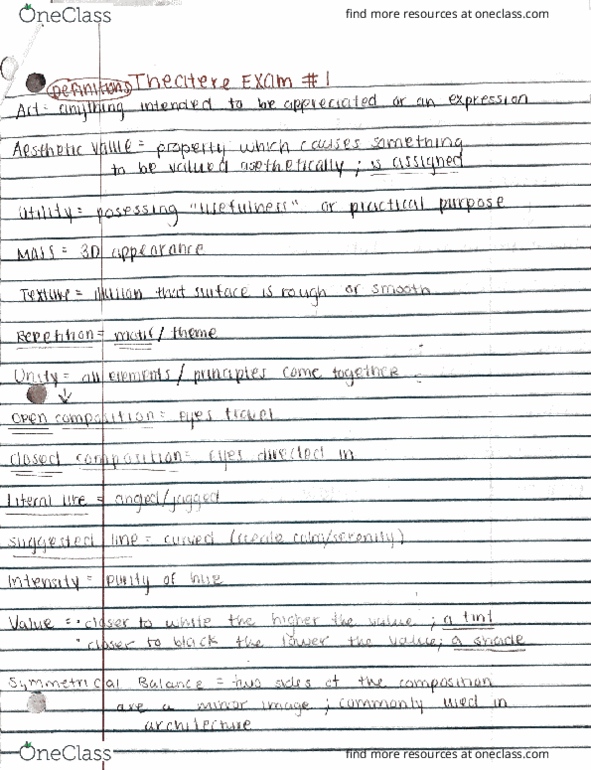 OneClass
find more resources at oneclass.com
Definitions Theatere Exam #1
Art= anything intended to be appreciated or an expression
Aesthetic value = property which causes something
to be valued asethetically ; is assigned
Utility = posessing "usefulness" or practical purpose
Mass = 3D appearance
Texture = illusion that surface is rough or smooth
Repetition= motif / theme
Unity = all elements / principles come together
↓
open composition = eyes
closed composition= eyes directed in
Literal line = angled/jagged
suggested line = curved (create calm/serenity)
Intensity = purity of hue
Value = • closer to white the higher the value ; a tint
• closer to black the lower the value; a shade
Symmetrical Balance = two sides of the composition
are a mirror image ; commonly used in
architecture
OneClass
find more resources at oneclass.com